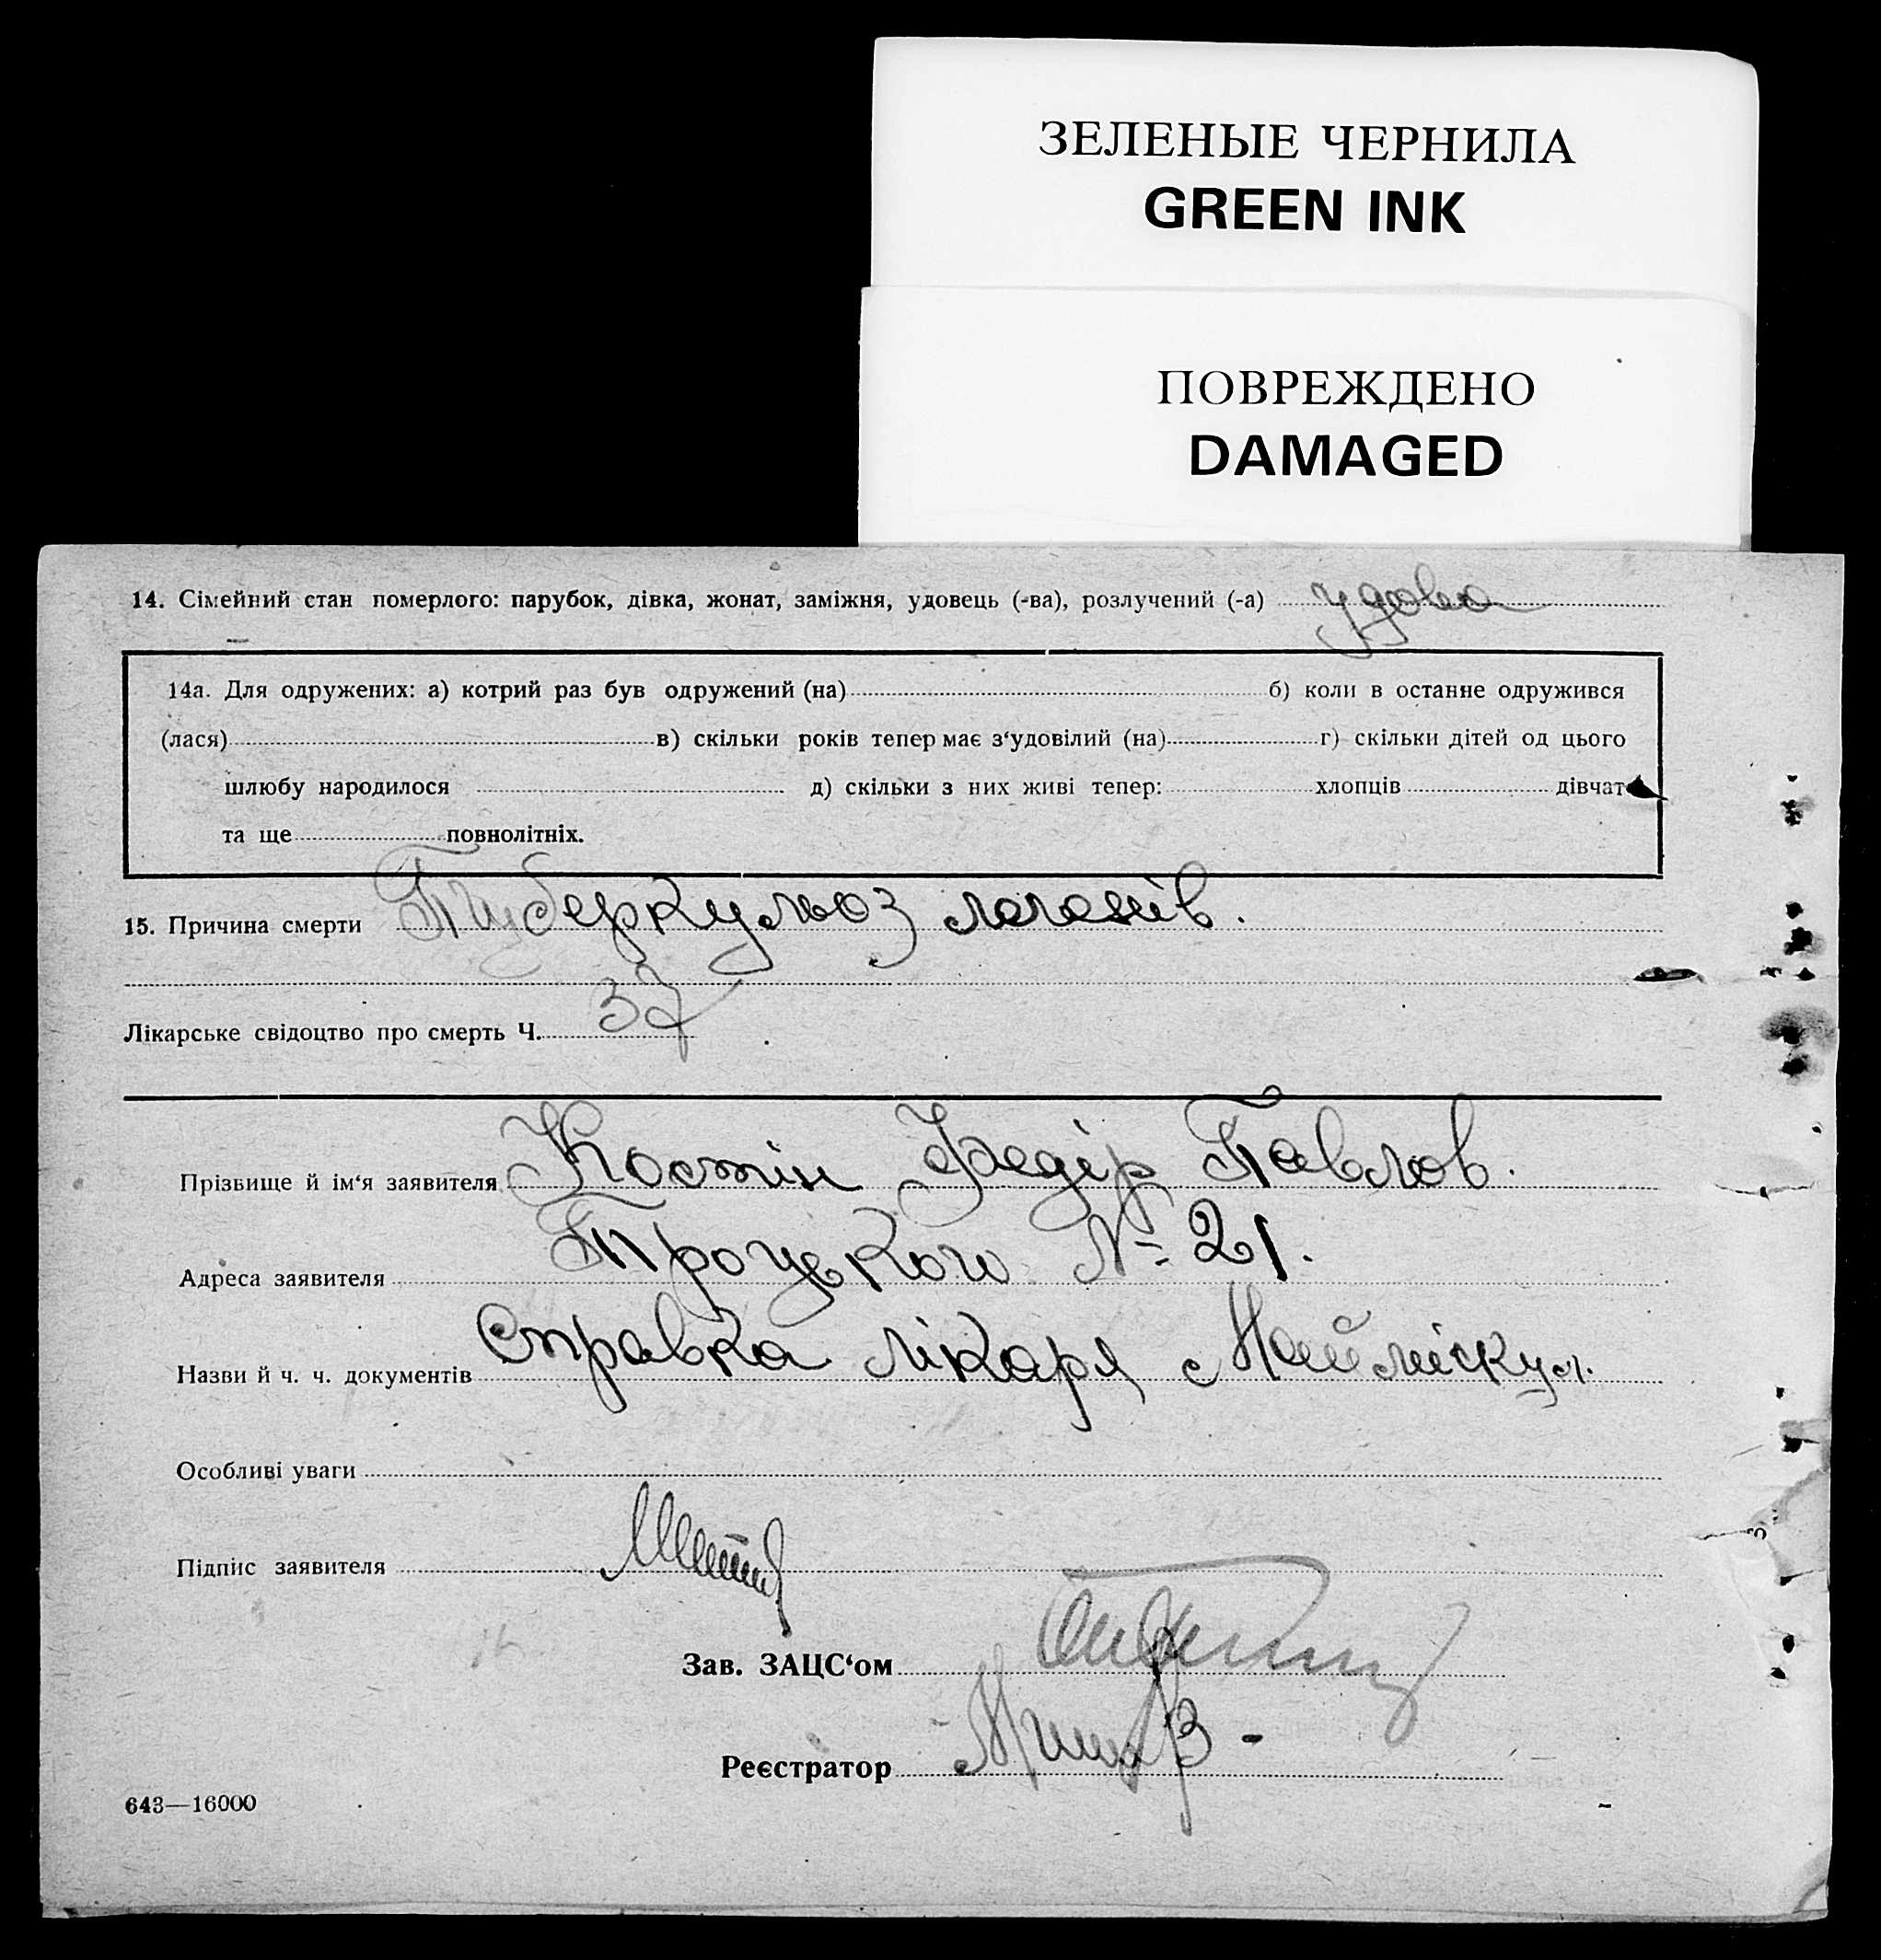 ЗЕЛЕНЫЕ ЧЕРНИЛА
GREEN INK
ПОВРЕЖДЕНО
DAMAGED
14. Сімейний стан померлого: парубок, дівка, жонат, заміжня, удовець (-ва), розлучений (-а) удова
14а. Для одружених: а) котрий раз був одружений (на) б) коли в останнє одружився
(лася) в) скільки років тепер має з‘удовілий (на) г) скільки дітей од цього
шлюбу народилося д) скільки з них живі тепер: хлопців дівчат
та ще повнолітніх.
15. Причина смерти Туберкульоз легенів.
Лікарське свідоцтво про смерть Ч. 37
Прізвище й ім‘я заявителя Костін Федір Павлов.
Адреса заявителя Троцького № 21.
Назви й ч. ч. документів Справка лікаря
Особливі уваги
Підпис заявителя
Зав. ЗАЦС‘ом
Реєстратор
643—16000